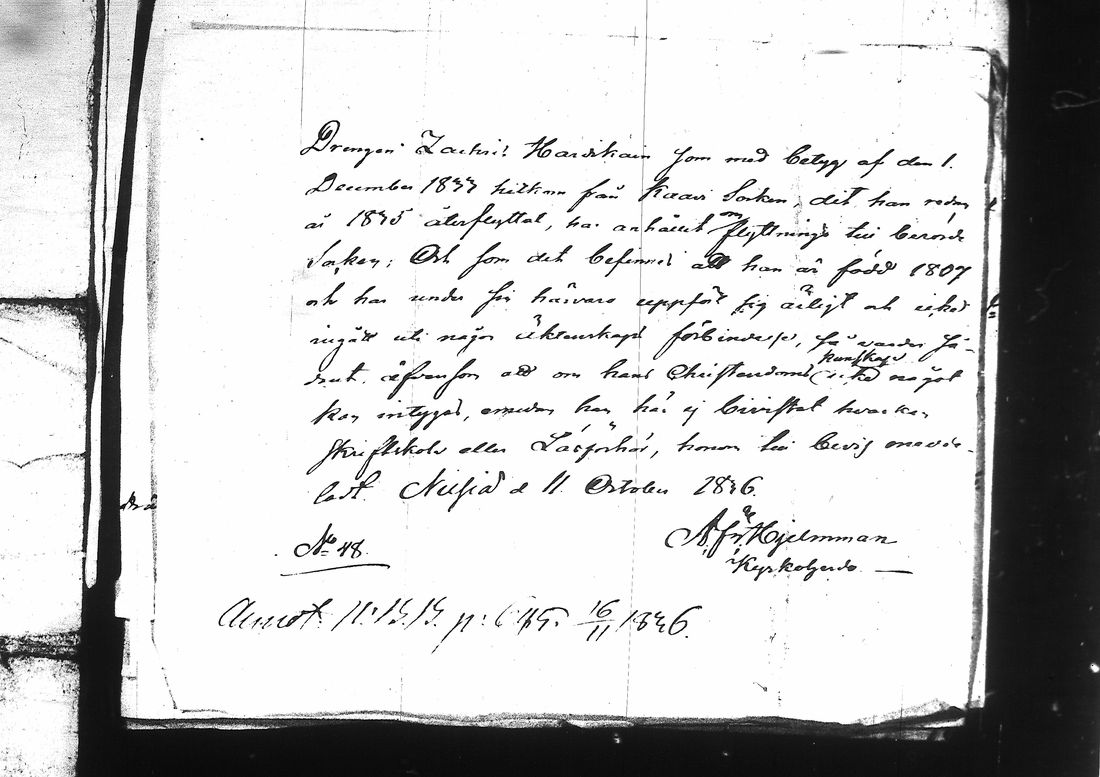 Drengen Zachris Hardikain som med betyg af den 1.
December 1833 hitkom från Kaavi Socken, dit han redan
år 1835 återflyttat, har anhållit om flyttnings till berörde
Socken; Och som det befinnes att han är född 1807
och har under sin härvaro uppfört sig ärligt och icke
ingått uti någon äktenskaps förbindelse, så varder så-
dant, äfvensom att om hans Christendoms kunskap icke något
kan intygas, emedan han här ej bivistat hvarken
Skriftskola eller Läsförhör, honom till bevis medde-
ladt. Nilsiä d 11. October 1836.
No 48.
Hjelmman
Kyrkoherde.
Annot. p: 16/11 1836.